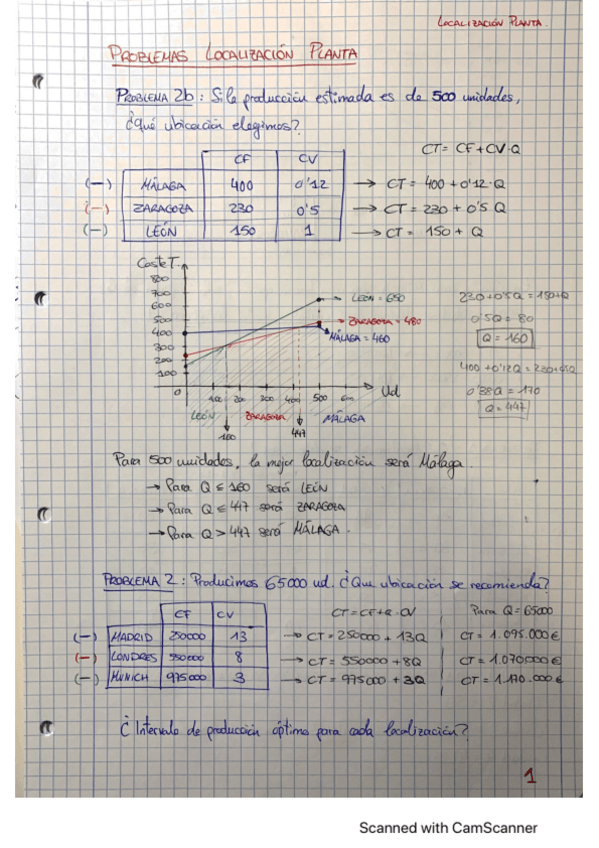 LOCALIZACIÓN PLANTA.
PROBLEMAS LOCALIZACIÓN PLANTA
PROBLEMA 2b: Si la producción estimada es de 500 unidades,
¿qué ubicación elegimos?
CT = CF + CV·Q
CF CV
(—) MÁLAGA 400 0'12 → CT = 400 + 0'12·Q
(—) ZARAGOZA 230 0'5 → CT = 230 + 0'5 Q
(—) LEÓN 150 1 → CT = 150 + Q
Coste T.
800
700
600
500
400
300
200
100
0
100 200 300 400 500 600 Ud
LEÓN = 650
ZARAGOZA = 480
MÁLAGA = 460
LEÓN ZARAGOZA MÁLAGA
160 447
230 + 0'5Q = 150 + Q
0'5Q = 80
Q = 160
400 + 0'12Q = 230 + 0'5Q
0'38Q = 170
Q = 447
Para 500 unidades, la mejor localización será Málaga.
→ Para Q ≤ 160 será LEÓN
→ Para Q ≤ 447 será ZARAGOZA
→ Para Q > 447 será MÁLAGA.
PROBLEMA 2: Producimos 65000 ud. ¿Que ubicación se recomienda?
CF CV CT = CF + Q·CV Para Q = 65000
(—) MADRID 250000 13 → CT = 250000 + 13Q CT = 1.095.000€
(—) LONDRES 550000 8 → CT = 550000 + 8Q CT = 1.070.000€
(—) MUNICH 975000 3 → CT = 975000 + 3Q CT = 1.170.000€
¿Intervalo de producción óptimo para cada localización?
1
Scanned with CamScanner